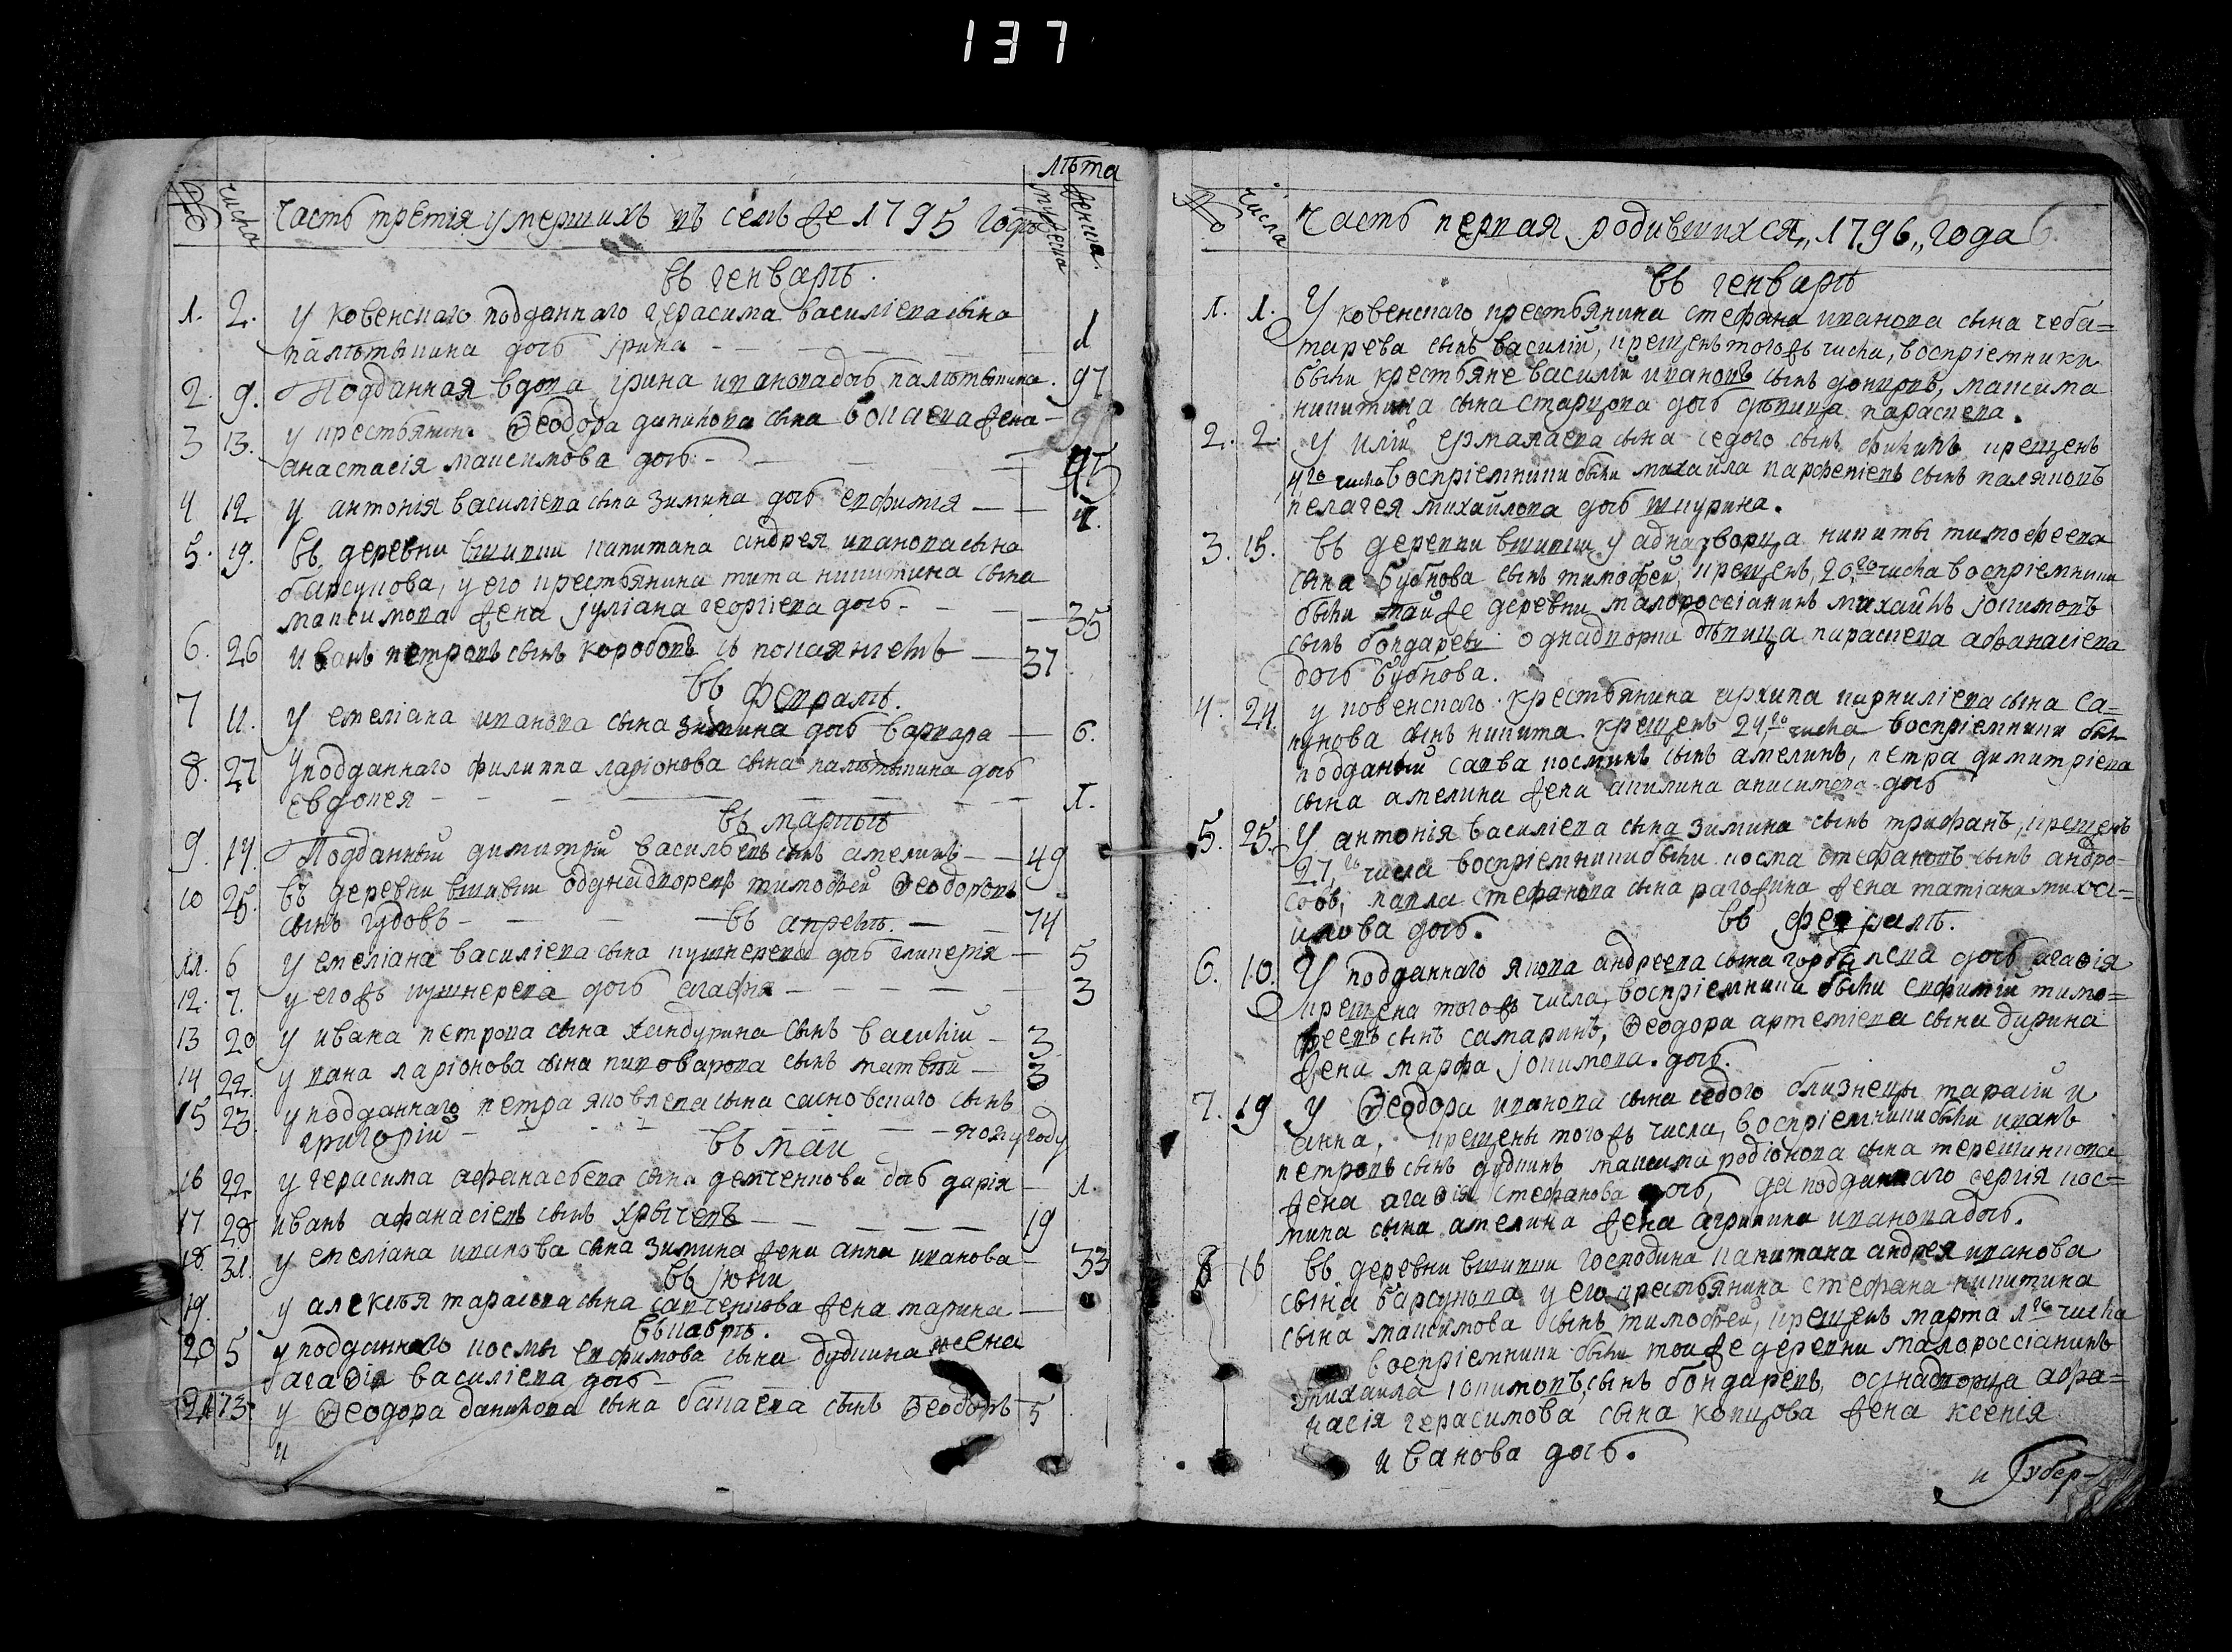 137
лѣта
№ числа Часть третія умершихъ въ семъ же 1795 годѣ мужеска женска.
въ генварѣ.
1. 2. у ковенскаго подданнаго герасима василіева сына
палѣтыкина дочь ірина 1
2. 9. Подданная вдова ірина иванова дочь палѣтыкина. 97
3 13. у крестьянина Ѳеодора данилова сына бокаева жена
анастасія максимова дочь
4 12 у антонія василіева сына зимина дочь евфимія 4.
5. 19. въ деревни вшивки капитана андрея иванова сына
барсукова, у его крестьянина тита никитина сына
максимова жена іуліана георгіева дочь 35
6. 26 иванъ петровъ сынъ коробовъ 37
въ февралѣ.
7 11. у емеліана иванова сына зимина дочь варвара 6.
8. 27 у подданнаго филиппа ларіонова сына палѣтыкина дочь
евдокея 1.
въ мартѣ
9. 14. Подданный димитрій васильевъ сынъ амелинъ 49
10 25. въ деревни вшивки однадворецъ тимофей Ѳеодоровъ
сынъ гудовъ въ апрелѣ. 74
11. 6 у емеліана василіева сына кушнерева дочь гликерія 5
12. 7. у егожъ кушнерева дочь агафія 3
13 20 у ивана петрова сына сынъ василій 3
14 22. у ивана ларіонова сына пивоварова сынъ матвѣй 3
15 23. у подданнаго петра яковлева сына сасновскаго сынъ
григорій полугоду
въ маи
16 22. у герасима афанасьева сына демченкова дочь дарія 1.
17 28 иванъ афанасіевъ сынъ хрычевъ 19
18 31. у емеліана иванова сына зимина жена анна иванова 33
въ іюни
19. у алексѣя тарасова сына савченкова жена марина
20 5 у подданнаго космы евфимова сына дудкина жена
агаѳія василіева дочь
21 13 у Ѳеодора данилова сына бакаева сынъ Ѳеодоръ 5
и
№ числа Часть первая родившихся, 1796, года 6.
въ генварѣ
1. 1. У ковенскаго крестьянина стефана иванова сына чеба=
тарева сынъ василій, крещенъ тогожъ числа, воспріемники
были крестьяне василій ивановъ сынъ донцовъ, максима
никитина сына старцова дочь дѣвица параскева.
2. 2. У иліи ермалаева сына седого сынъ филипъ крещенъ
4го числа воспріемники были михаила парфеніевъ сынъ паляковъ
пелагея михайлова дочь шкурина.
3. 15. въ деревни вшивки у аднадворца никиты тимофеева
сына бубнова сынъ тимофей, крещенъ, 20,го числа воспріемники
были тойже деревни малороссіанинъ михаилъ іокимовъ
сынъ бондаревъ однадворка дѣвица параскева афанасіева
дочь бубнова.
4. 24. у ковенскаго крестьянина архипа карниліева сына са=
пунова сынъ никита. крещенъ 24го числа воспріемники были
подданый савва косминъ сынъ амелинъ, петра димитріева
сына амелина жена акилина анисимова дочь
5. 25. У антонія василіева сына зимина сынъ трифанъ, крещенъ
27,го числа воспріемники были косма стефановъ сынъ андро-
совъ, павла стефанова сына рагожина жена татіана миха=
илова дочь. въ февралѣ.
6. 10. У подданнаго якова андреева сына горбалева дочь агаѳія
крещена тогожъ числа, воспріемники были евфимій тимо=
феевъ сынъ самаринъ, Ѳеодора артеміева сына дирина
жена марфа іокимова. дочь.
7. 19 у Ѳеодора иванова сына седого близнецы тарасій и
анна, крещены тогожъ числа, воспріемники были иванъ
петровъ сынъ дудкинъ максима родіонова сына терешинкова
жена агаѳія стефанова дочь, да подданнаго сергія кос=
мина сына амелина жена агрипина иванова дочь.
8 18 въ деревни вшивки господина капитана андрея иванова
сына барсукова у его крестьянина стефана никитина
сына максимова сынъ тимофей, крещенъ марта 1го числа
воспріемники были тоя же деревни малороссіанинъ
михаила іокимовъ, сынъ бондаревъ, однадворца афа=
насія герасимова сына копцова жена ксенія
иванова дочь.
и Губер-